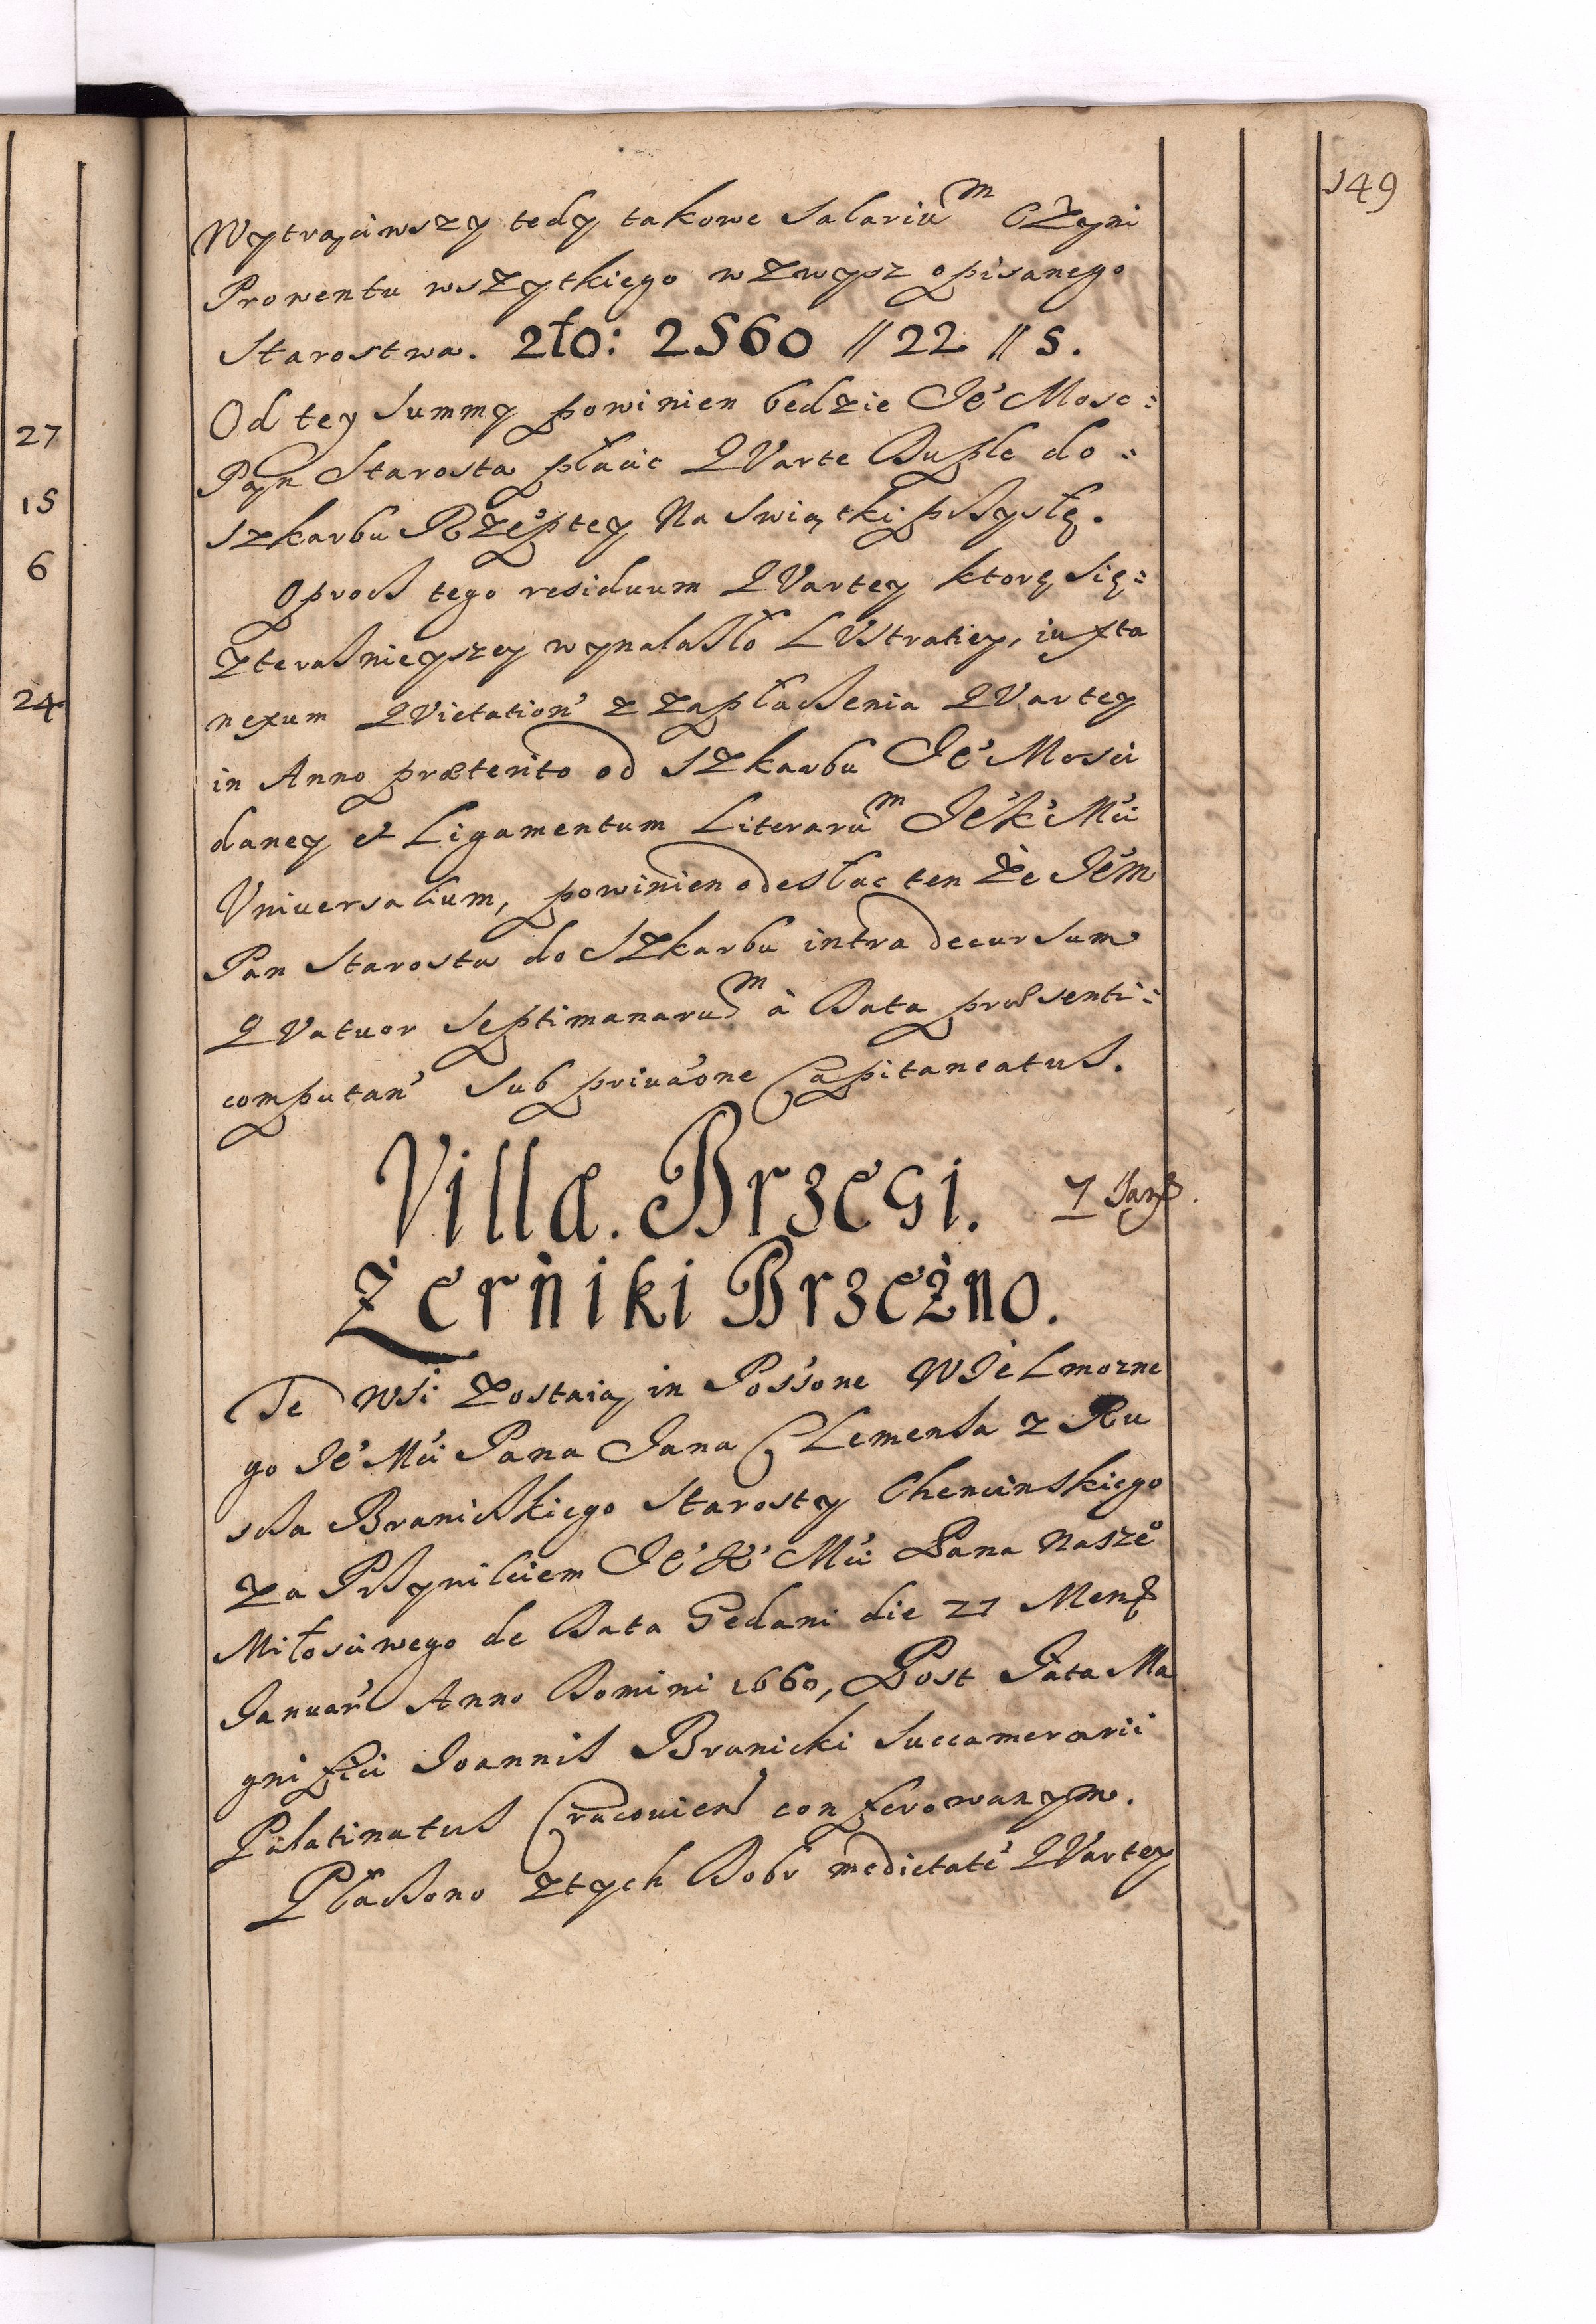 149
Wytrąciwszy tedy takowe Salariũm Czyni
Prowentu wszytkiego wzwysz opisanego
Starostwa. zło: 2560 // 22 // 5.
Od tey Summy powinien bedzie Je͛ Mosc:
Pan Starosta płacic QVarte Duple do:
szkarbu Rzeptey Na Swiątki przyszłę.
Oprocz tego residuum QVartey ktorę się:
zteraznieyszey wynalazło LVstratiey, iuxta
nexum QVietation' z zapłaczenia QVartey
in Anno præterito od szkarbu Je͛ Mosci
daney et Ligamentum Literarũm Je͛ K͛ Mci
Vniuersalium, powinien odesłac ten że Je͛m
Pan Starosta do Szkarbu intra decursum
QVatuor Septimanarũm à Data præsenti:
computan' Sub priuaone Capitaneatus.
Villæ. Brzegi.
Żerniki Brzeżno.
Te Wsi zostaią in Poss'one WJelmozne
go Je͛ Mci Pana Jana Clemensa z Ru
scza Branickiego Starosty Chencinskiego
za Przywilciem Je͛ K͛ Mci Pana Nasze͛o
Miłosciwego de Data Gedani die 21 Mens
Januarij Anno Domini 1660, Post Fata Ma
gnifici Joannis Branicki Succamerarii
Palatinatus Cracouien' conferowanym.
Płaczono ztych Dobr medietate͛ QVartey
27
15
6
24